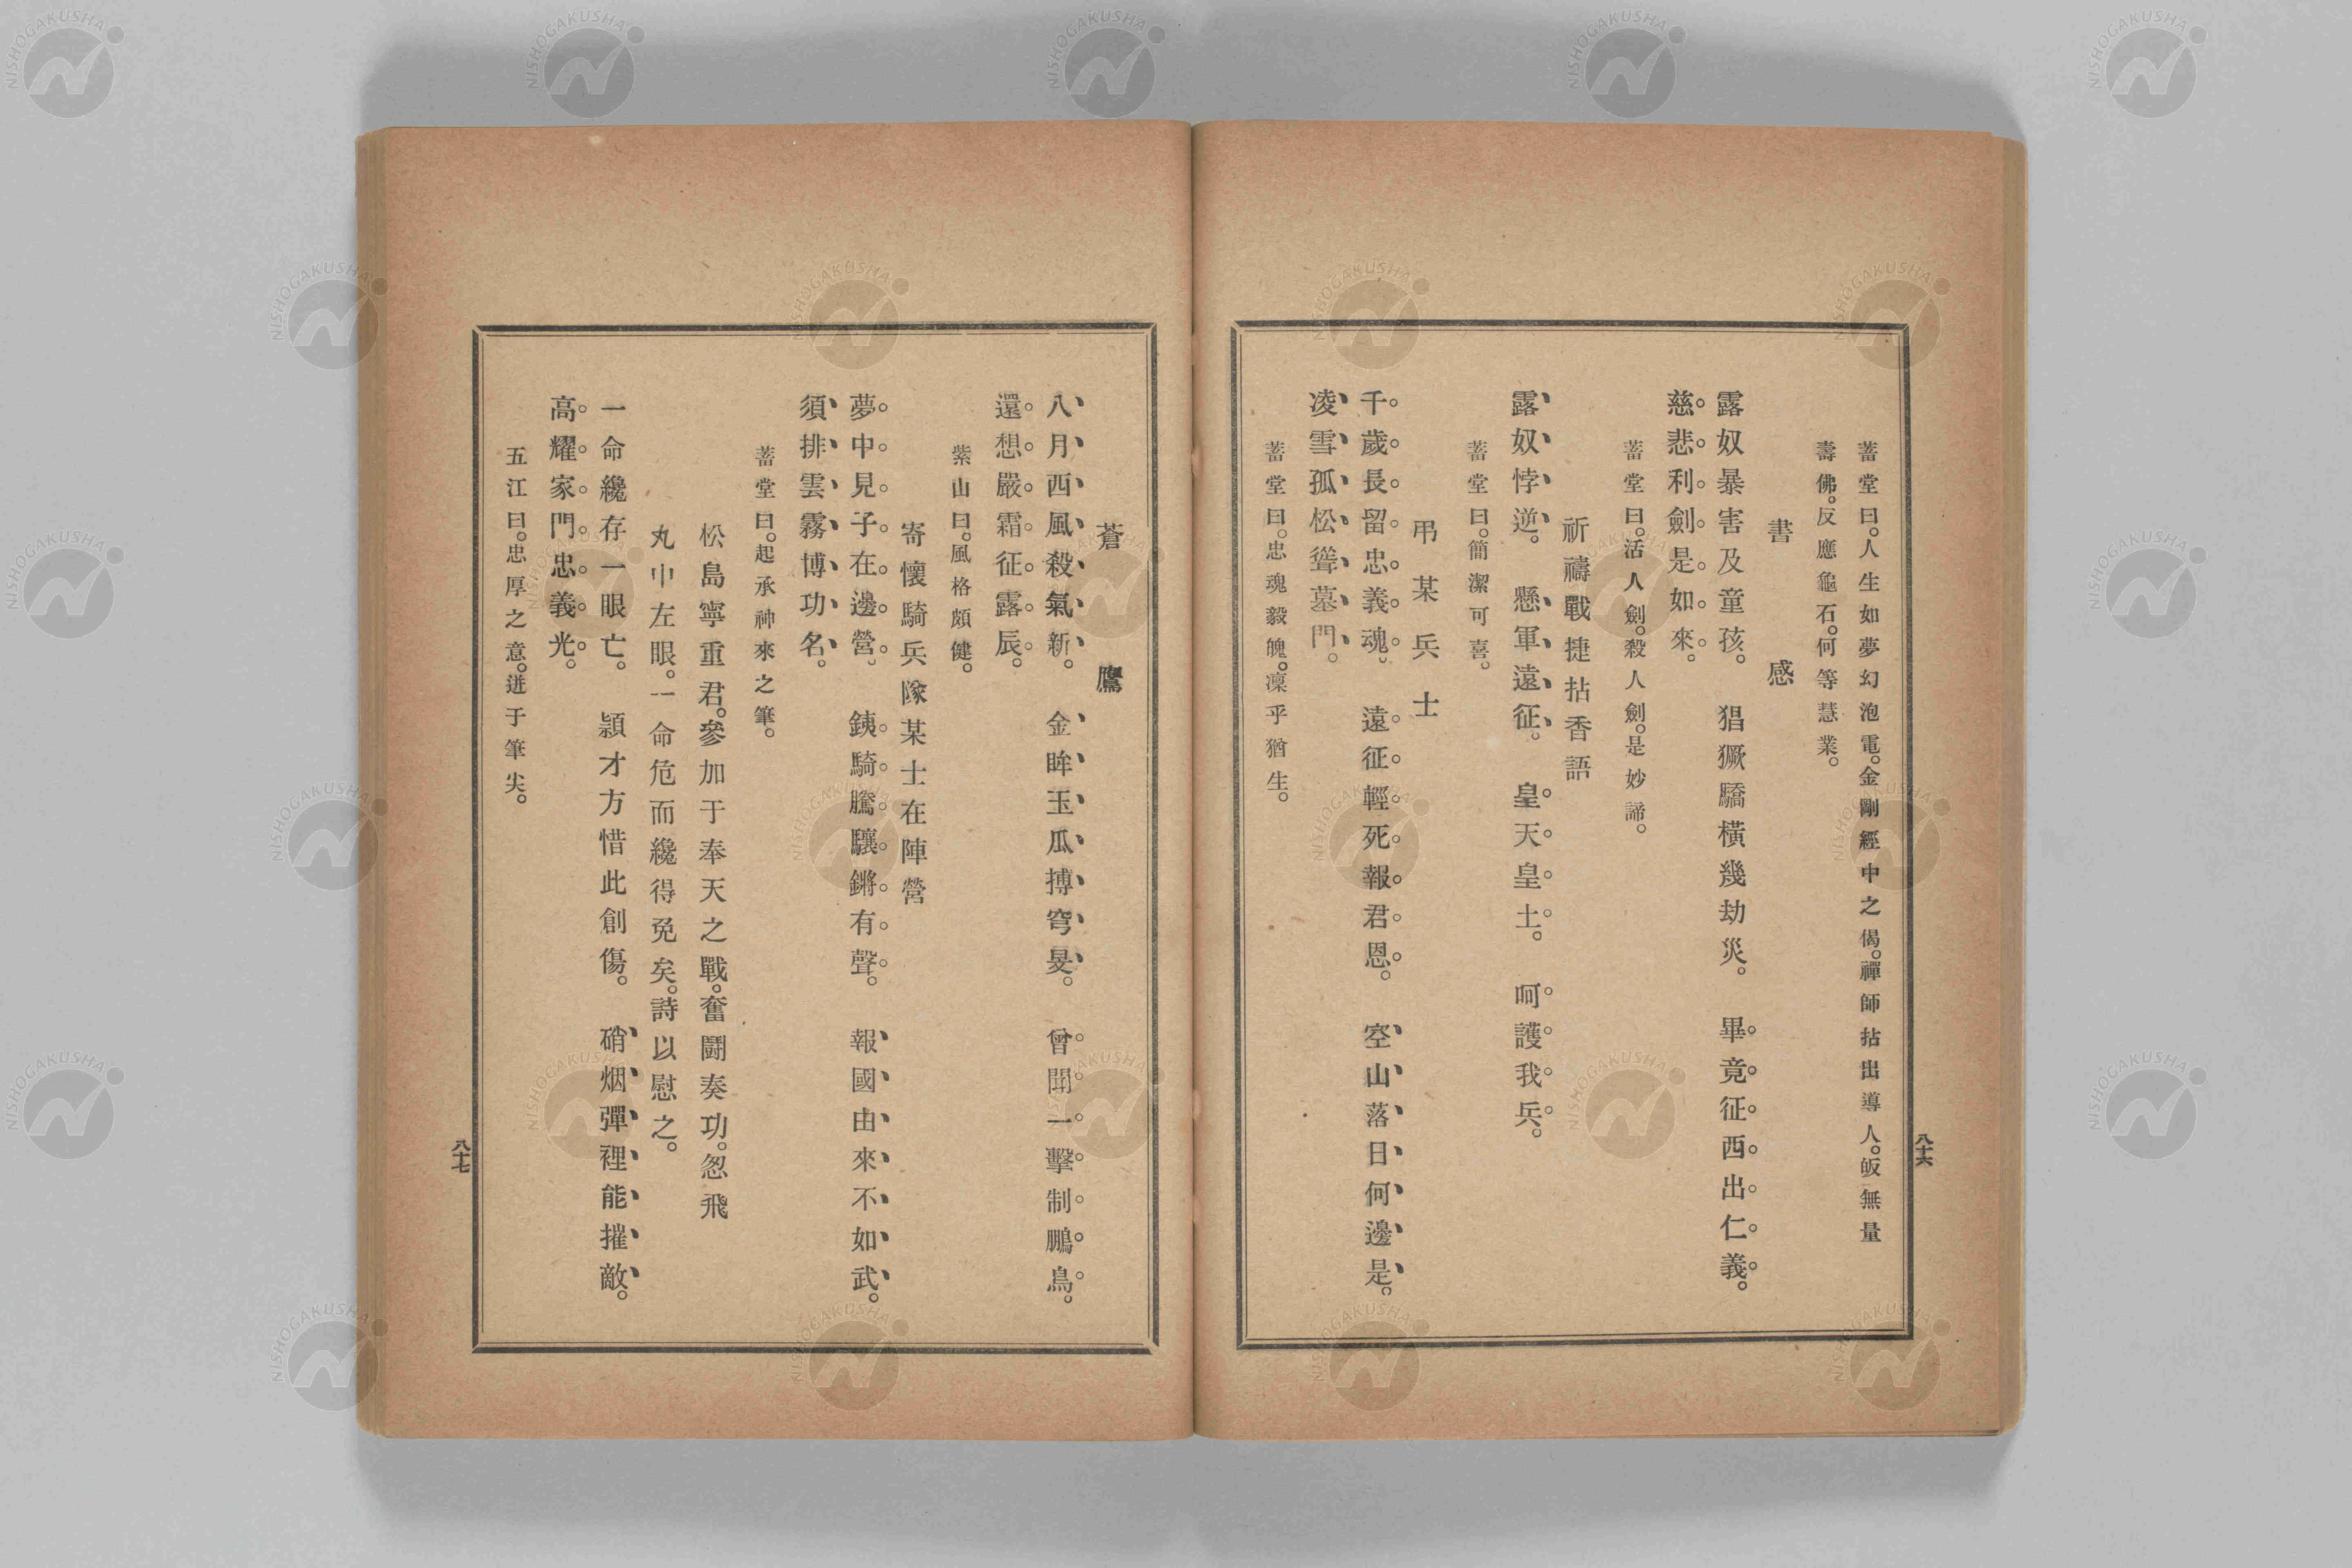 蓄堂曰。人生如夢幻泡電。金剛經中之偈。禪師拈出導人。皈無量
壽佛。反應龜石。何等慧業。
書感
露奴暴害及童孩。猖獗驕橫幾劫災。畢竟征西出仁義。
慈悲利劍是如來。
蓄堂曰。活人劍。殺人劍。是妙諦。
祈禱戰捷拈香語
露奴悖逆。懸軍遠征。皇天皇土。呵護我兵。
蓄堂曰。簡潔可喜。
弔某兵士
千歲長留忠義魂。遠征輕死報君恩。空山落日何邊是。
凌雪孤松聳墓門。
蓄堂曰。忠魂毅魄。凜乎猶生。
八十六
蒼鷹
八月西風殺氣新。金眸玉瓜搏穹旻。曾聞一擊制鵬鳥。
還想嚴霜征露辰。
紫山曰。風格頗健。
寄懷騎兵隊某士在陣營
夢中見子在邊營。銕騎騰驤鏘有聲。報國由來不如武。
須排雲霧博功名。
蓄堂曰。起承神來之筆。
松島寧重君。參加于奉天之戰。奮鬪奏功。忽飛
丸中左眼。一命危而纔得免矣。詩以慰之。
一命纔存一眼亡。頴才方惜此創傷。硝烟彈裡能摧敵。
高耀家門忠義光。
五江曰。忠厚之意。迸于筆尖。
八十七
NISHOGAKUSHA